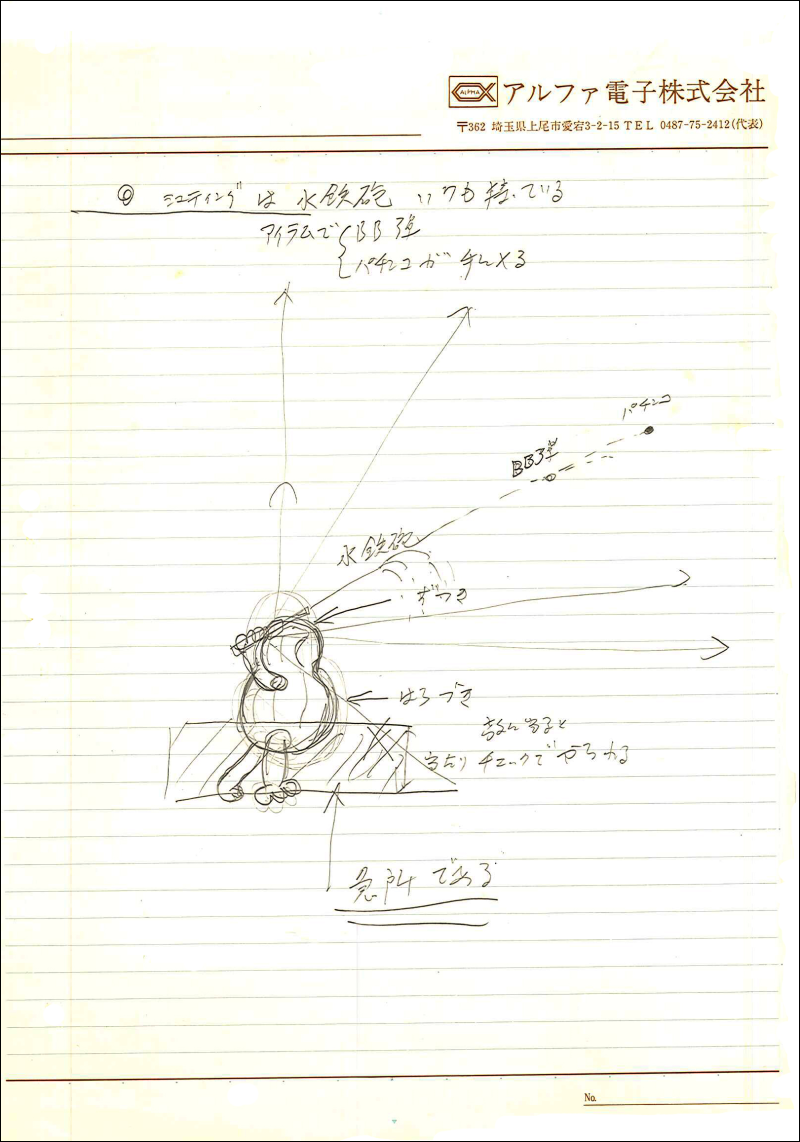 ALPHA アルファ電子株式会社
〒362 埼玉県上尾市愛宕3-2-15 TEL 0487-75-2412(代表)
シュティングは 水鉄砲 いつも持っている
アイテムで BB弾
パチンコが手に入る
パチンコ
BB弾
水鉄砲
ずつき
はらづき
に当ると
当たりチェックでやられる
急所である
No.